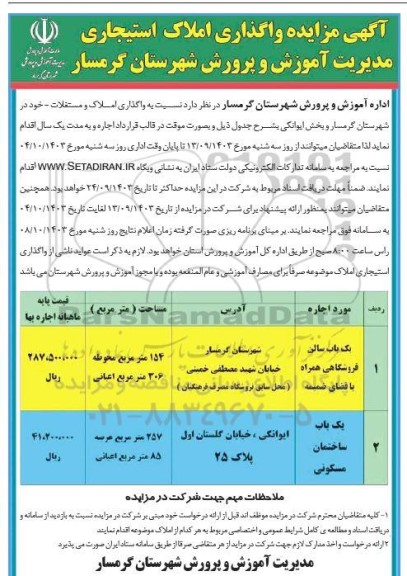 آگهی مزایده واگذاری املاک استیجاری
مدیریت آموزش و پرورش شهرستان گرمسار
اداره آموزش و پرورش شهرستان گرمسار در نظر دارد نسبت به واگذاری املاک و مستغلات - خود در
شهرستان گرمسار و بخش ایوانکی بشرح جدول ذیل و بصورت موقت در قالب قرارداد اجاره و به مدت یک سال اقدام
نماید لذا متقاضیان میتوانند از روز سه شنبه مورخ ۱۳/۰۹/۱۴۰۳ تا پایان وقت اداری روز سه شنبه مورخ ۰۴/۱۰/۱۴۰۳
نسبت به مراجعه به سامانه تدارکات الکترونیکی دولت ستاد ایران به نشانی وبگاه WWW.SETADIRAN.IR اقدام
نمایند. ضمناً مهلت دریافت اسناد مربوط به شرکت در این مزایده حداکثر تا تاریخ ۲۴/۰۹/۱۴۰۳ خواهد بود. همچنین
متقاضیان میتوانند بمنظور ارائه پیشنهاد برای شرکت در مزایده از تاریخ ۱۳/۰۹/۱۴۰۳ لغایت تاریخ ۰۴/۱۰/۱۴۰۳
به سامانه فوق مراجعه نمایند. بر مبنای برنامه ریزی صورت گرفته زمان اعلام نتایج روز شنبه مورخ ۰۸/۱۰/۱۴۰۳
راس ساعت ۸:۰۰ صبح از طریق اداره کل آموزش و پرورش استان خواهد بود. لازم به ذکر است عواید ناشی از واگذاری
استیجاری املاک موضوعه صرفاً برای مصارف آموزشی و عام المنفعه بوده و با مجوز آموزش و پرورش شهرستان می باشد
ردیف مورد اجاره آدرس مساحت ( متر مربع ) قیمت پایه ماهیانه اجاره بها
۱ یک باب سالن فروشگاهی همراه با فضای ضمیمه شهرستان گرمسار خیابان شهید مصطفی خمینی ( محل سابق فروشگاه مصرف فرهنگیان ) ۱۵۴ متر مربع محوطه ۳۰۶ متر مربع اعیانی ۲۸۷,۵۰۰,۰۰۰ ریال
۲ یک باب ساختمان مسکونی ایوانکی ، خیابان گلستان اول پلاک ۲۵ ۲۵۷ متر مربع عرصه ۸۵ متر مربع اعیانی ۴۱,۲۰۰,۰۰۰ ریال
۰۲۱-۸۸۳۴۹۶۷۰-۵
ملاحظات مهم جهت شرکت در مزایده
۱- کلیه متقاضیان محترم شرکت در مزایده موظف اند قبل از ارائه درخواست خود مبنی بر شرکت در مزایده نسبت به بازدید از سامانه و
دریافت اسناد و مطالعه ی کامل شرایط عمومی و اختصاصی مربوط به هر کدام از املاک موضوعه اقدام نمایند
۲ ارائه درخواست و اخذ مدارک لازم جهت شرکت در مزایده از هر متقاضی صرفا از طریق سامانه ستاد ایران صورت می پذیرد
مدیریت آموزش و پرورش شهرستان گرمسار